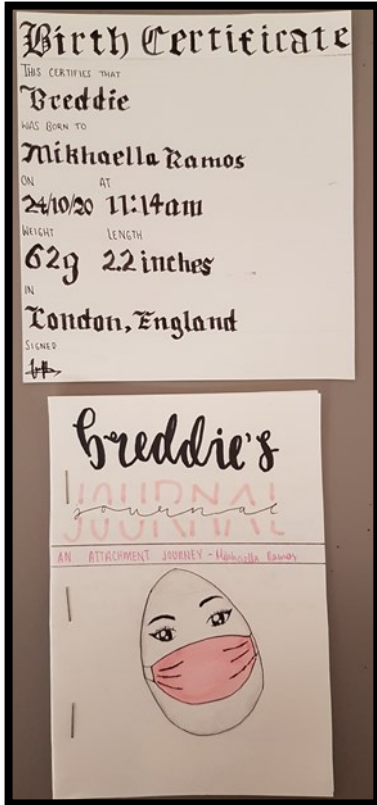 Birth Certificate
THIS CERTIFIES THAT
Breddie
WAS BORN TO
Mikhaella Ramos
ON AT
24/10/20 11:14am
WEIGHT LENGTH
62g 2.2 inches
IN
London, England
SIGNED
breddie's
JOURNAL
journal
AN ATTACHMENT JOURNEY - Mikhaella Ramos